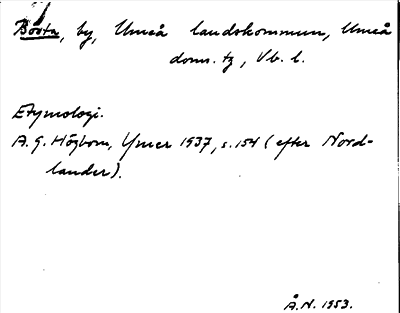 Boota, by, Umeå landskommun, Umeå
doms. tg, Vb. l.
Etymologi.
A. G. Högbom, Ymer 1937, s. 154 (efter Nord-
lander).
Å. N. 1953.